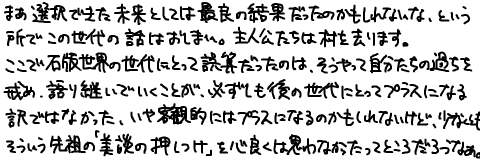 まあ選択できた未来としては最良の結果だったのかもしれないな、という
所でこの世代の話はおしまい。主人公たちは村を去ります。
ここで石版世界の世代にとって誤算だったのは、そうやって自分たちの過ちを
戒め、語り継いでいくことが、必ずしも後の世代にとってプラスになる
訳ではなかった、いや客観的にはプラスになるのかもしれないけど、少なくとも
そういう先祖の「美談の押しつけ」を心良くは思わなかったってところだろうなぁ。